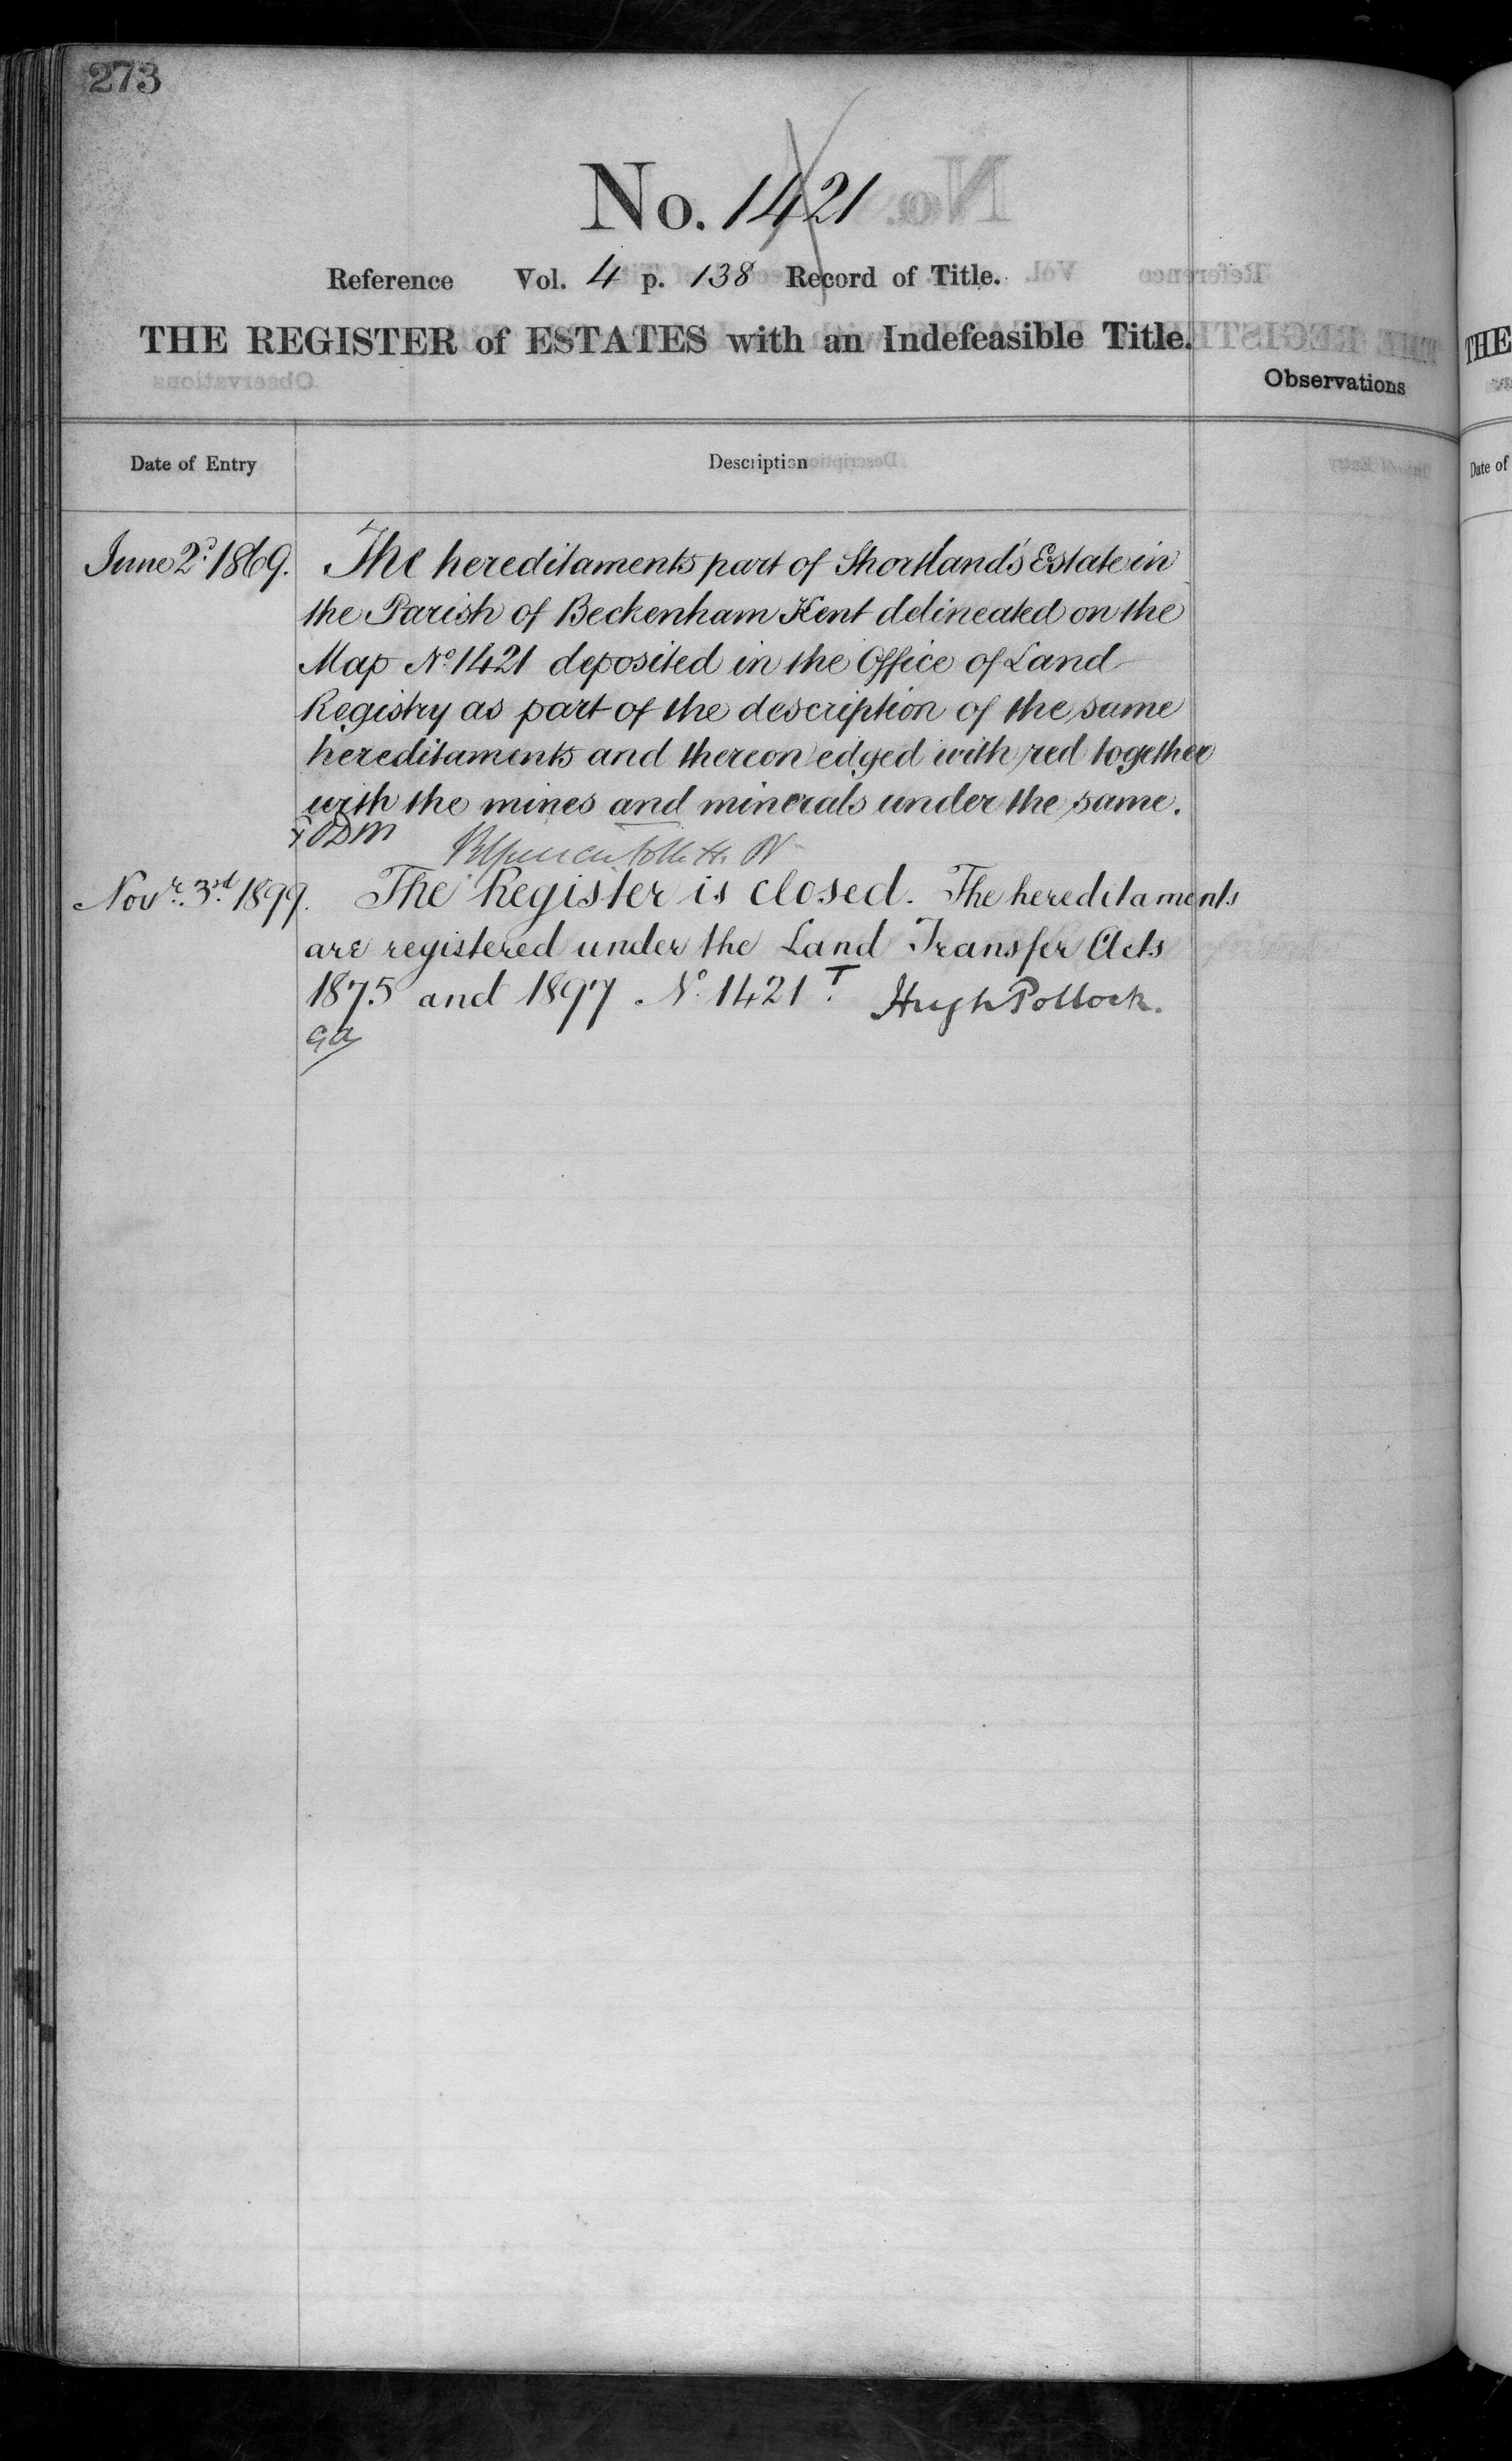 273
No. 1421
Reference Vol. 4 p. 138 Record of Title.
THE REGISTER of ESTATES with an Indefeasible Title.
Observations
Date of Entry
Description
June 2d. 1869. The hereditaments part of Shortland's Estate in
the Parish of Beckenham Kent delineated on the
Map No. 1421 deposited in the Office of Land
Registry as part of the description of the same
hereditaments and thereon edged with red together
with the mines and minerals under the same.
Novr. 3rd. 1899. The Register is closed. The hereditaments
are registered under the Land Transfer Acts
1875 and 1897 No. 1421T. Hugh Pollock.
THE
Date of